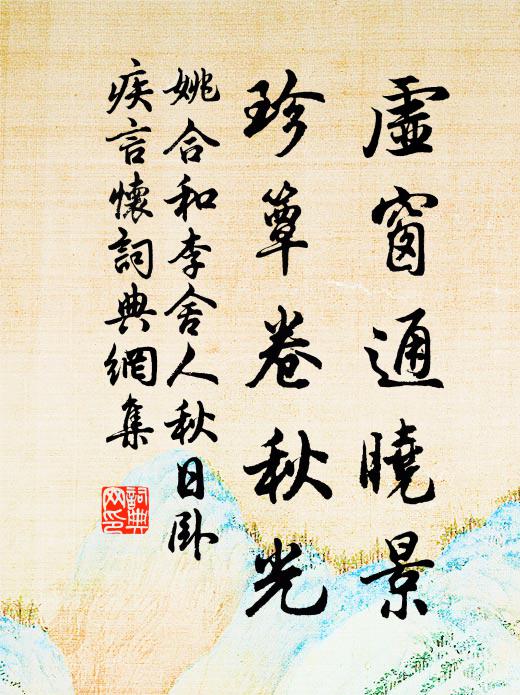 虛窗通曉景
珍簟卷秋光
姚合和李舍人秋日臥
疾言懷詞典網集
詞典
网印